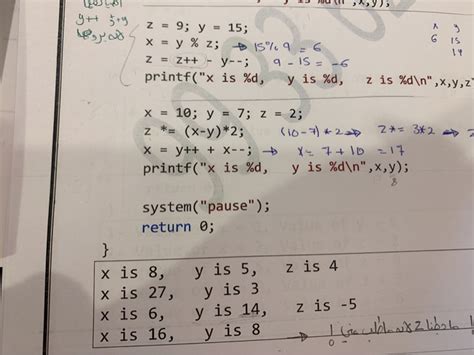 y is %d\n",x,y);
z = 9; y = 15;
x y
x = y % z; → 15%9 = 6
6 15
14
z = z++ - y--; 9 - 15 = -6
printf("x is %d, y is %d, z is %d\n",x,y,z
x = 10; y = 7; z = 2;
z *= (x-y)*2; (10-7)*2 → z*= 3*2 →
x = y++ + x--; → x= 7 + 10 = 17
printf("x is %d, y is %d\n",x,y);
8
system("pause");
return 0;
}
x is 8, y is 5, z is 4
x is 27, y is 3
x is 6, y is 14, z is -5
x is 16, y is 8 →